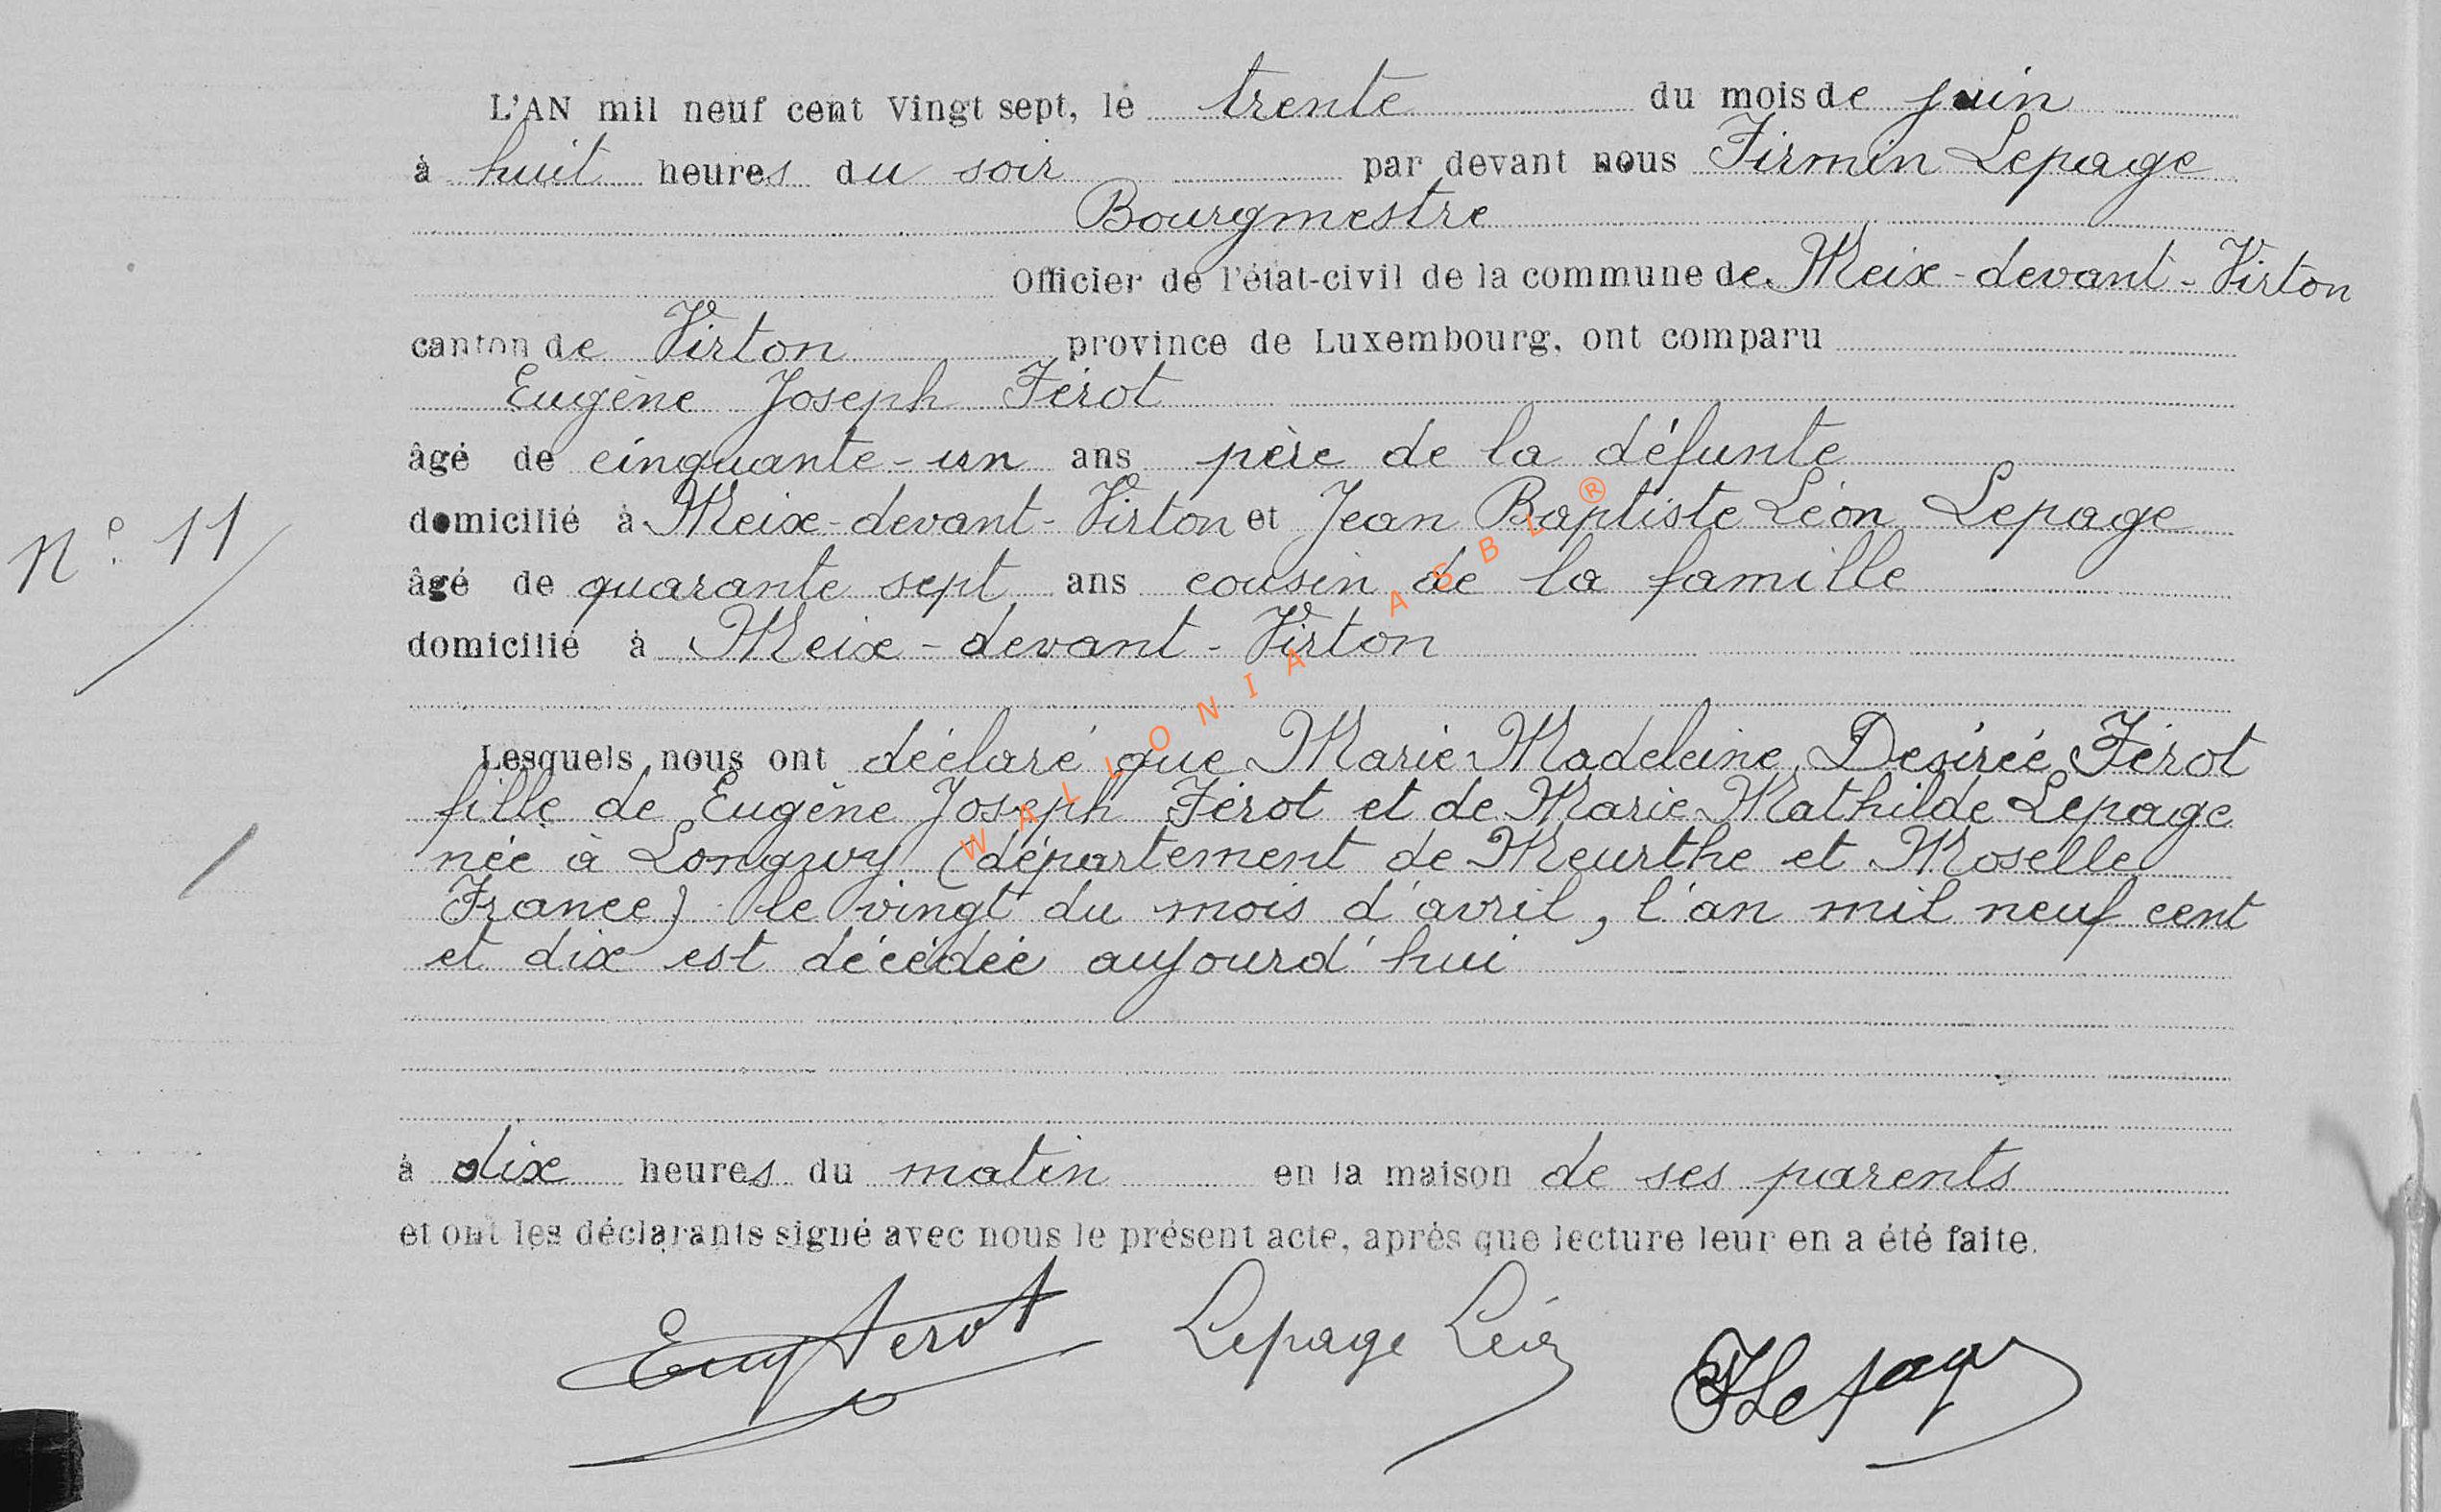 L'AN mil neuf cent Vingt sept, le trente du mois de juin
à huit heures du soir par devant nous Firmin Lepage
Bourgmestre
Officier de l'état-civil de la commune de Meix-devant-Virton
canton de Virton province de Luxembourg, ont comparu
Eugène Joseph Férot
âgé de cinquante-un ans père de la défunte
domicilié à Meix-devant-Virton et Jean Baptiste Léon Lepage
N° 11
âgé de quarante sept ans cousin de la famille
domicilié à Meix-devant-Virton
Lesquels nous ont déclaré que Marie Madeleine Desirée Férot
fille de Eugène Joseph Férot et de Marie Mathilde Lepage
née à Longwy (département de Meurthe et Moselle
France) le vingt du mois d'avril, l'an mil neuf cent
et dix est décédée aujourd'hui
à dix heures du matin en la maison de ses parents
et ont les déclarants signé avec nous le présent acte, après que lecture leur en a été faite.
Eug Ferot Lepage Léon FLepage
WALLONIA ASBL ®